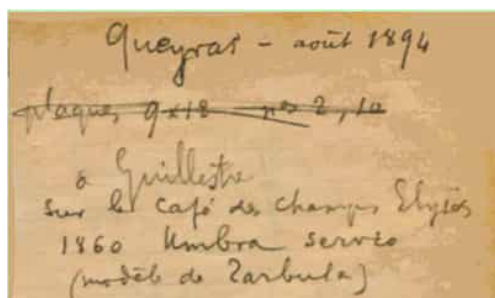 Queyras - août 1894
plaques 9x18 nos 2, 10
à Guillestre
sur le café des Champs Elysées
1860 Umbra servio
(modèle de Zarbula)